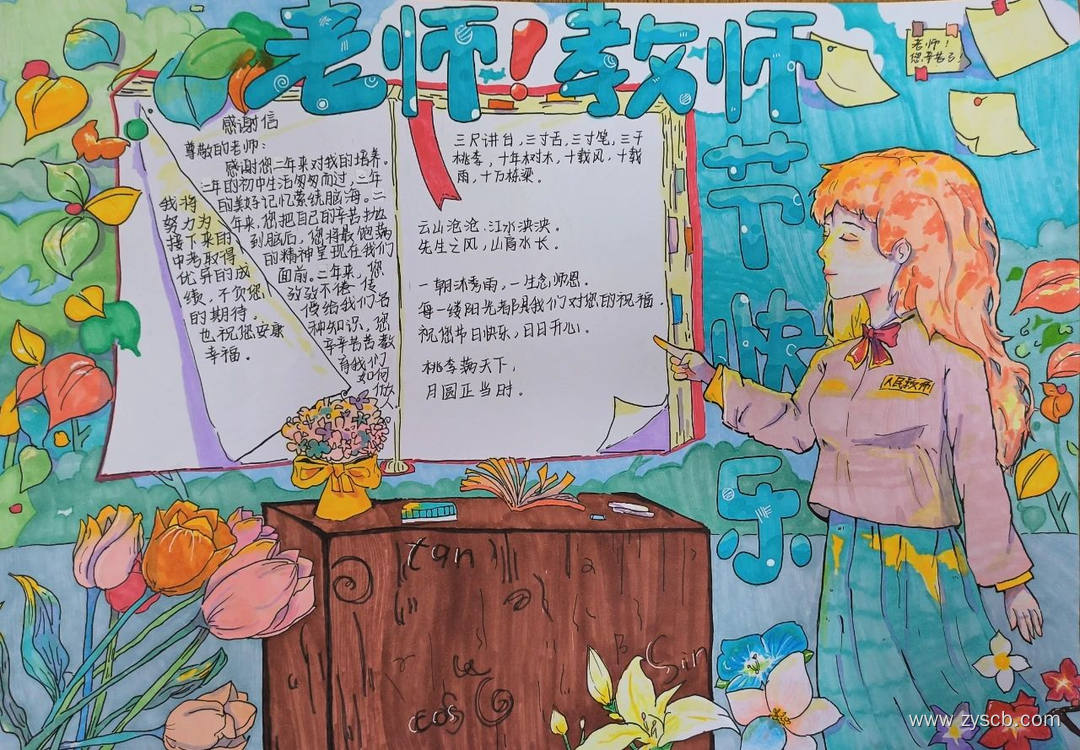 老师!教师
节
快
乐
老师!
您辛苦了!
感谢信
尊敬的老师:
感谢您二年来对我的培养。
二年的初中生活匆匆而过,二年
的美好记忆萦绕脑海。二
年来,您把自己的辛苦抛
到脑后,您将最饱满
的精神呈现在我们
面前。二年来,您
孜孜不倦 传
授给我们各
种知识,您
辛辛苦苦教
育我们
如何
做
我将
努力为
接下来的
中考取得
优异的成
绩,不负您
的期待。
也祝您安康
幸福。
三尺讲台,三寸舌,三寸笔,三千
桃李,十年树木,十载风,十载
雨,十万栋梁。
云山沧沧,江水泱泱。
先生之风,山高水长。
一朝沐秀雨,一生念师恩。
每一缕阳光都是我们对您的祝福,
祝您节日快乐,日日开心。
桃李满天下,
月圆正当时。
人民教师
tan
cos
Sin
www.zyscb.com